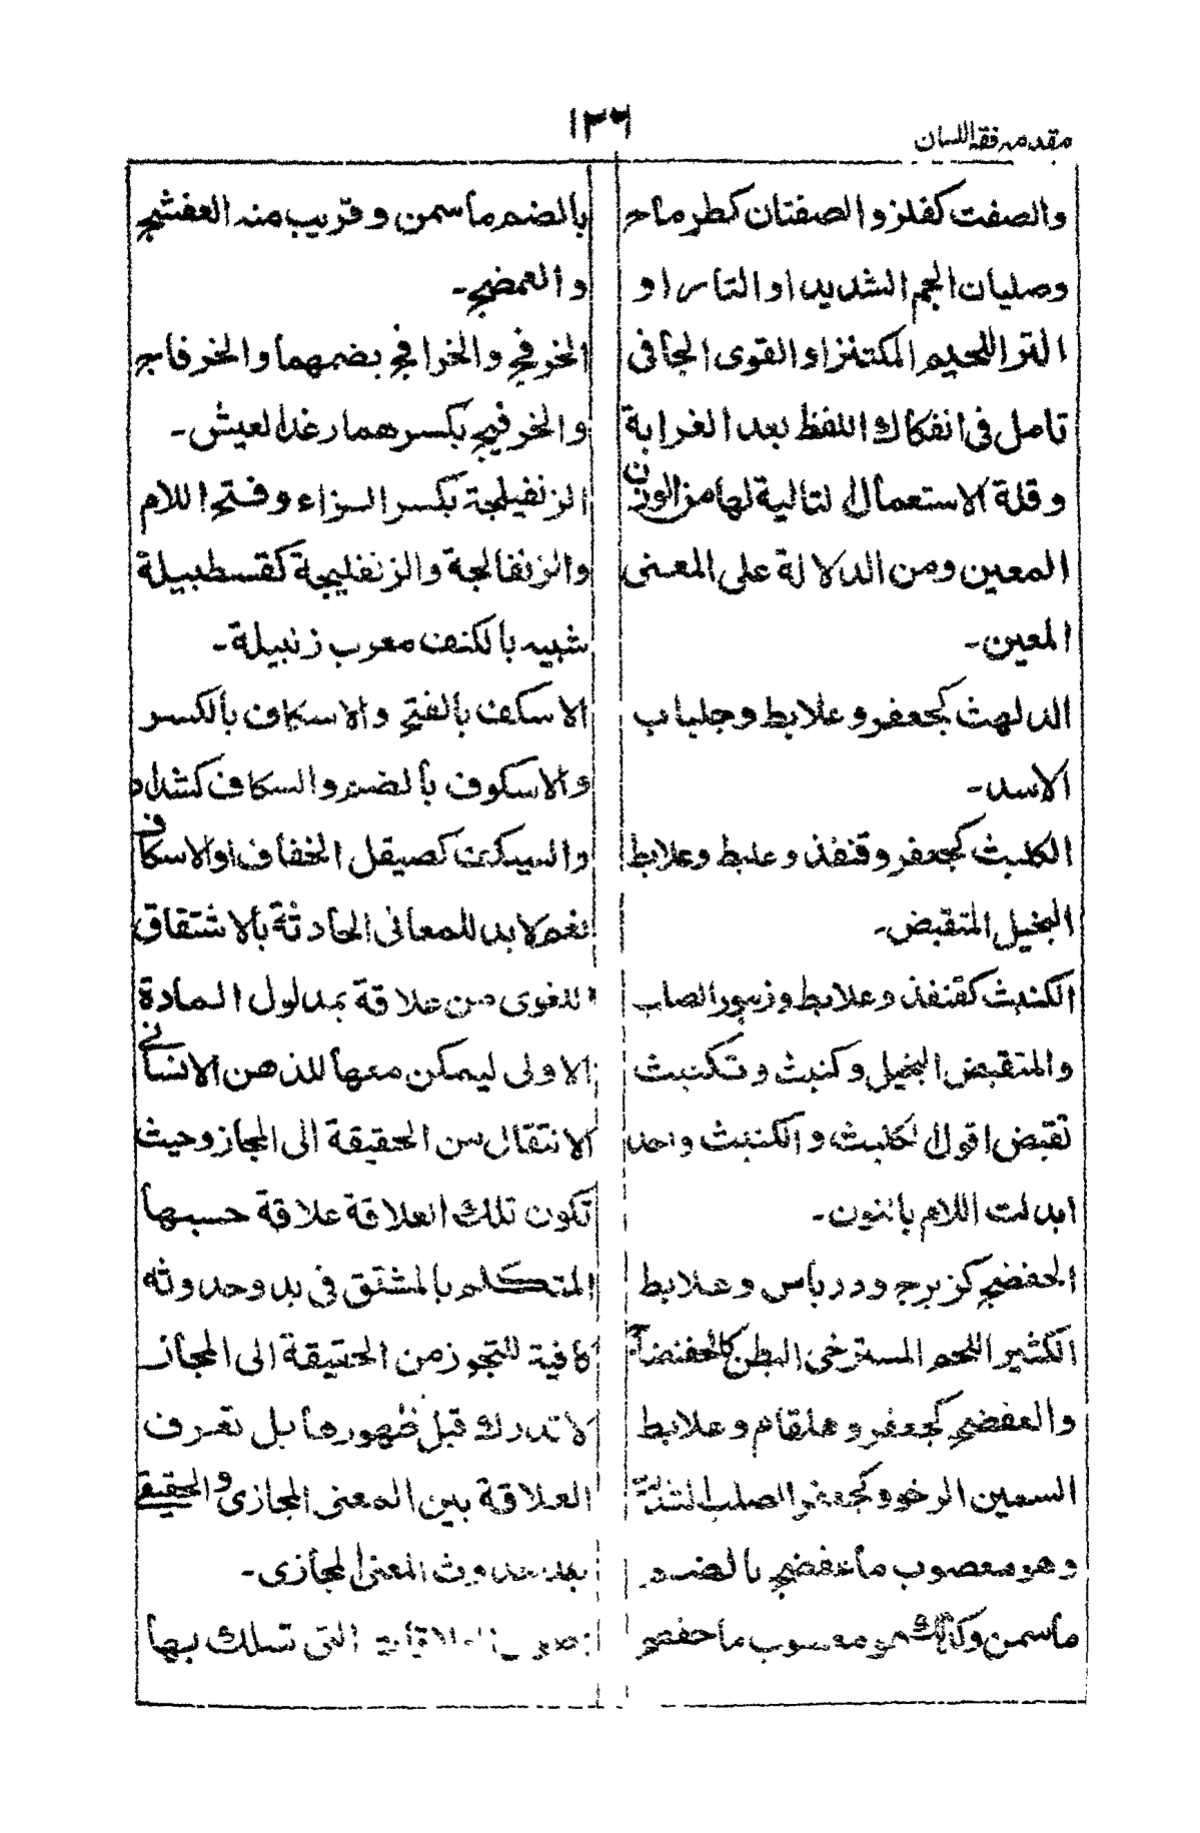 مقدمہ فقہ اللسان
۱۳۶
والصفت كفلز والصفتان كطرماح
وصليان الجم الشديد او التار او
التر اللحيم المكتنز او القوى الجافى
تامل فى انفكاك اللفظ بعد الغرابة
وقلة الاستعمال التالية لها من الوزن
المعين ومن الدلالة على المعنى
المعين۔
الدلهث كجعفر وعلابط وجلباب
الاسد۔
الكلبث كجعفر وقنفذ وعلبط وعلابط
البخيل المتقبض۔
الكنبث كقنفذ وعلابط وزبور الصلب
والمتقبض البخيل وكنبث وتكنبث
تقبض اقول الكلبث والكنبث واحد
ابدلت اللام بالنون۔
الحفضج كزبرج ودرباس وعلابط
الكثير اللحم المسترخى البطن كالحفنضاج
والعفضج كجعفر وهلقام وعلابط
السمين الرخو وكجعفر الصلب
وهو معصوب ما عفضج بالضم
ما سمن وكذلك هو معصوب ما حفضج
بالضم ما سمن وقريب منه العفشج
والعمضج۔
الخرفج والخرافج بضمهما والخرفاج
والخرفيج بكسرهما رغد العيش۔
الزنفيلجة بكسر الزاء وفتح اللام
والزنفالجة والزنفليجة كقسطبيلة
شبيه بالكنف معرب زنبيلة۔
الاسكف بالفتح والاسكاف بالكسر
والاسكوف بالضم والسكاف كشداد
والسيكف كصيقل الخفاف او الاسكاف
نعم لابد للمعانى الحادثة بالاشتقاق
اللغوى من علاقة بمدلول المادة
الاولى ليمكن معها للذهن الانسانى
الانتقال من الحقيقة الى المجاز وحيث
تكون تلك العلاقة علاقة حسبها
المتكلم بالمشتق فى بدو حدوثه
كافية للتجوز من الحقيقة الى المجاز
لا تدرك قبل ظهورها بل تعرف
العلاقة بين المعنى المجازى والحقيقى
بعد حدوث المعنى المجازى۔
التى تسلك بها